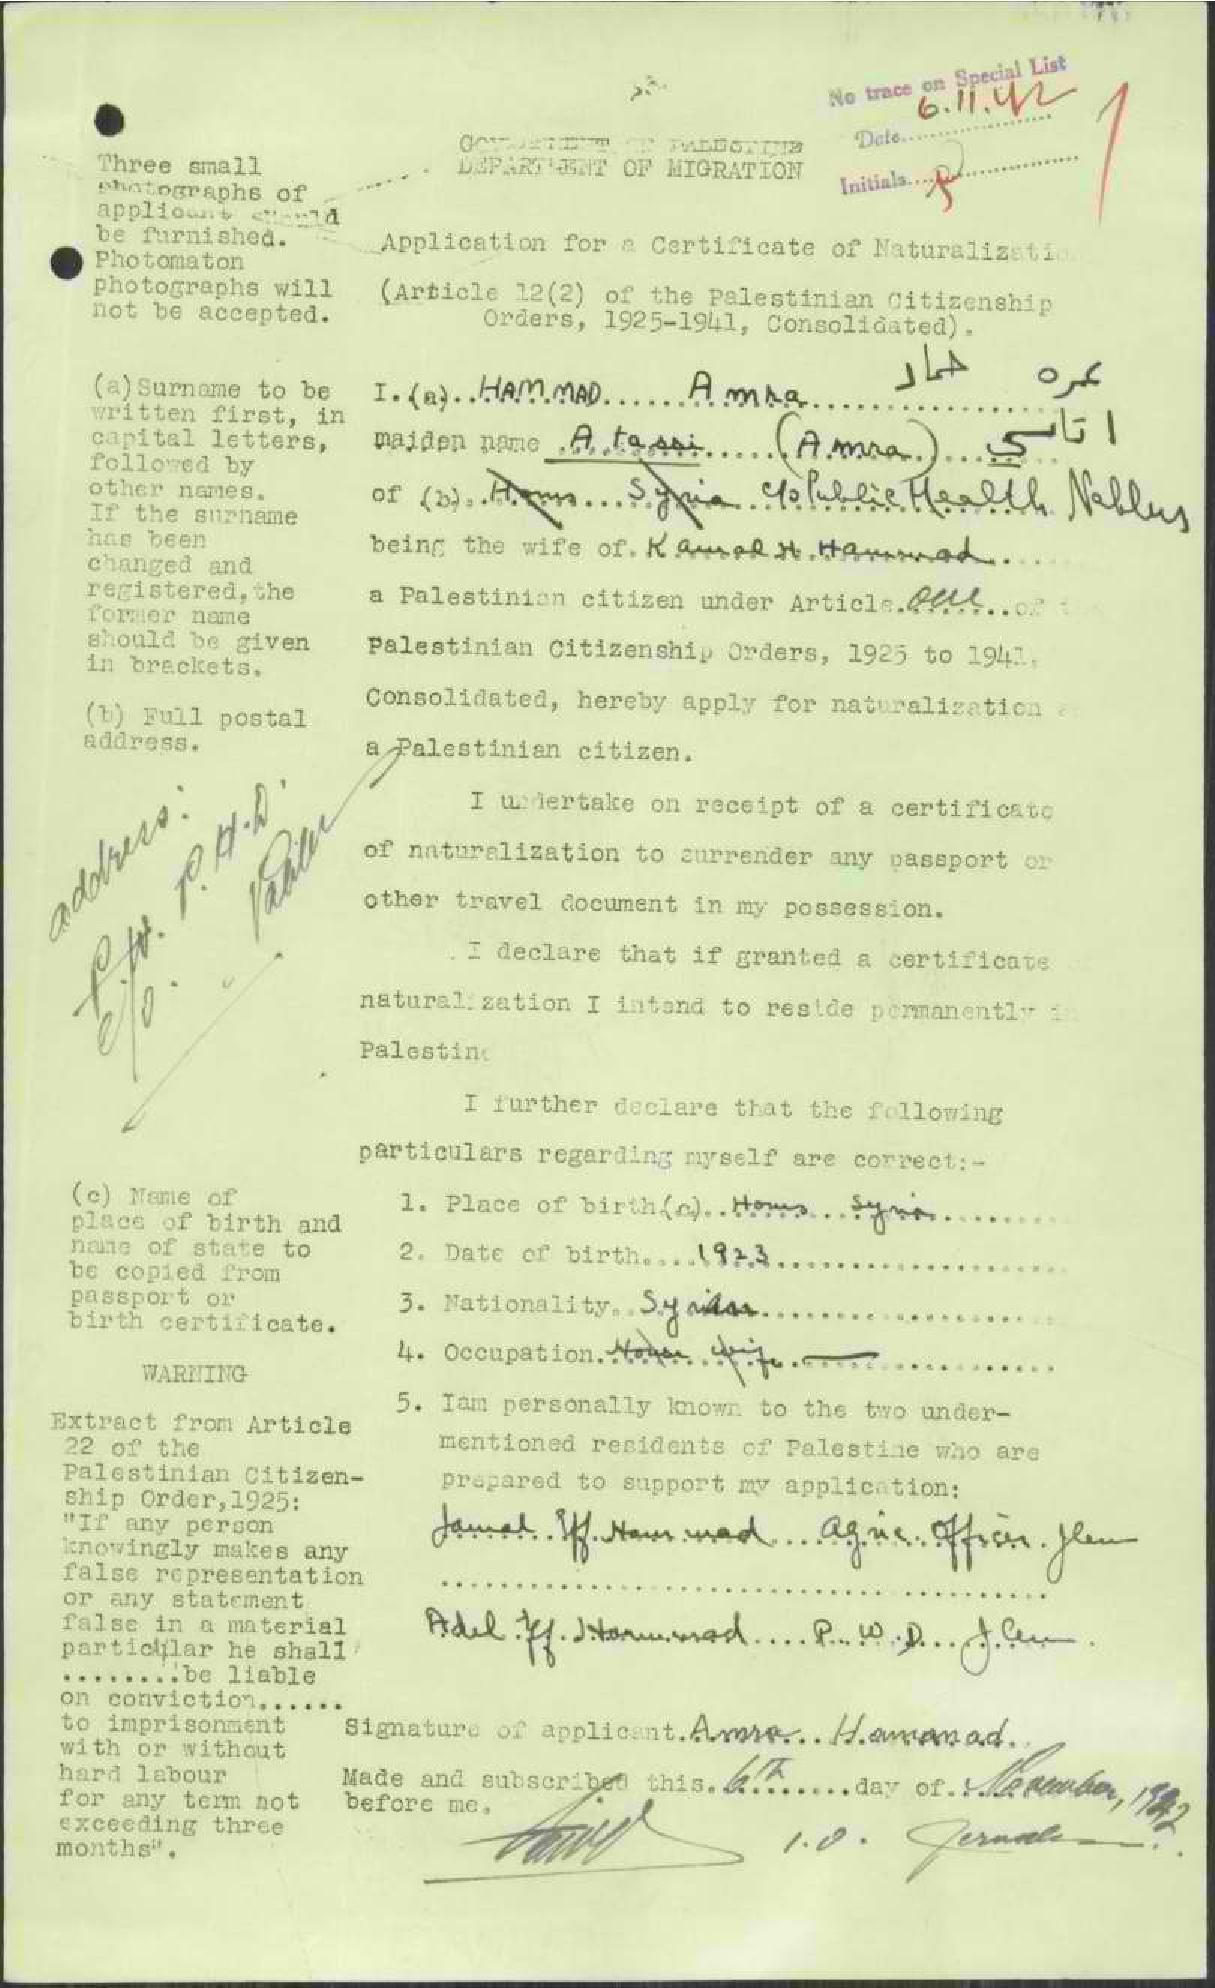 No trace on Special List
Date 6.11.42
Initials
GOVERNMENT OF PALESTINE
DEPARTMENT OF MIGRATION
Three small
photographs of
applicant should
be furnished.
Photomaton
photographs will
not be accepted.
Application for a Certificate of Naturalizatio
(Article 12(2) of the Palestinian Citizenship
Orders, 1925-1941, Consolidated).
(a)Surname to be
written first, in
capital letters,
followed by
other names.
If the surname
has been
changed and
registered,the
former name
should be given
in brackets.
(b) Full postal
address.
عمره حماد
I.(a)..HAMMAD......Amra
maiden name Atassi.....(Amra) اتاسي
of (b)..Homs...Syria c/o Public Health Nablus
being the wife of.Kamal H. Hammad
a Palestinian citizen under Article.one...of t
Palestinian Citizenship Orders, 1925 to 1941,
Consolidated, hereby apply for naturalization a
a Palestinian citizen.
address:
P.H.D.
Nablus
c/o.
I undertake on receipt of a certificate
of naturalization to surrender any passport or
other travel document in my possession.
I declare that if granted a certificate
naturalization I intend to reside permanently i
Palestine
I further declare that the following
particulars regarding myself are correct:-
(c) Name of
place of birth and
name of state to
be copied from
passport or
birth certificate.
1. Place of birth(c)..Homs...Syria
2. Date of birth....1923
3. Nationality..Syrian
4. Occupation.House wife
5. Iam personally known to the two under-
mentioned residents of Palestine who are
prepared to support my application:
Jamal Eff. Hammad....Agric. Officer. Jlem
Adel Eff. Hammad....P.W.D...Jlem.
WARNING
Extract from Article
22 of the
Palestinian Citizen-
ship Order,1925:
"If any person
knowingly makes any
false representation
or any statement
false in a material
particular he shall
........be liable
on conviction......
to imprisonment
with or without
hard labour
for any term not
exceeding three
months".
Signature of applicant.Amra...Hammad.
Made and subscribed this.6th........day of...November, 1942
before me.
I.O. Jerusalem